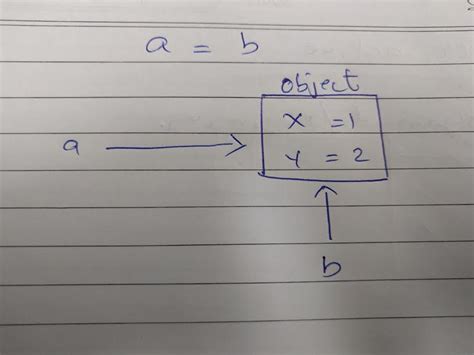 a = b
object
x = 1
a
y = 2
b